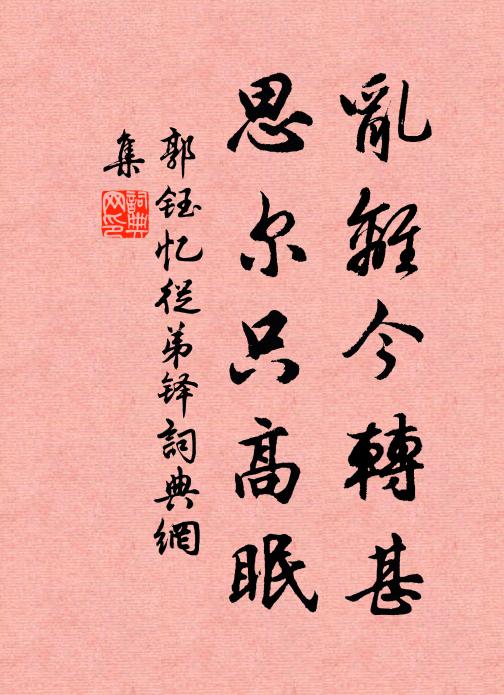 亂離今轉甚
思尔只高眠
郭鈺忆從弟铎詞典網
集
詞典
网印